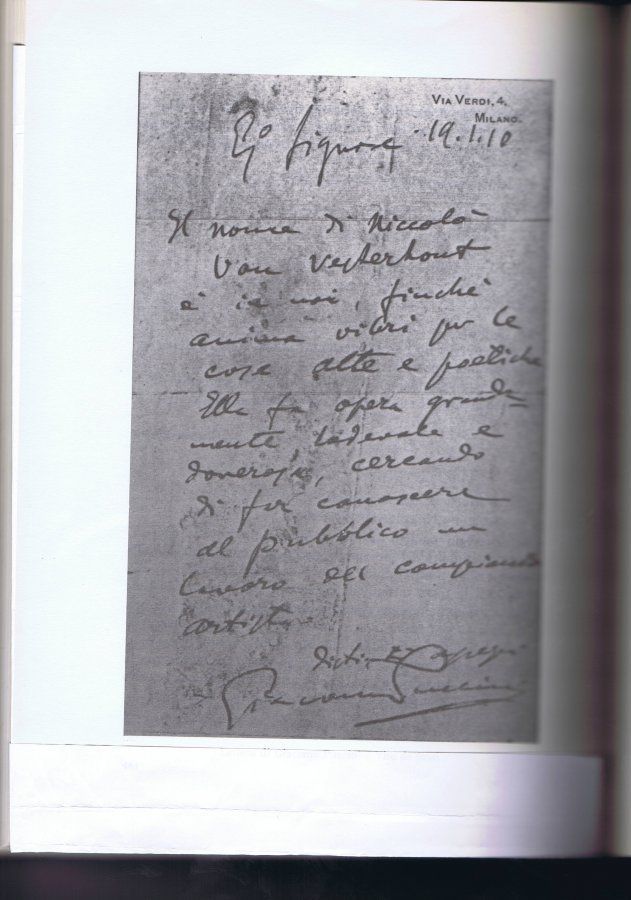 VIA VERDI, 4,
MILANO.
19.1.10
Eg° Signore
Il nome di Niccolò
Van Vesterhout
è in noi, finchè
anima vibri per le
cose alte e poetiche
Ella fa opera grande-
mente lodevole e
doverosa, cercando
di far conoscere
al pubblico un
lavoro del compianto
artista.
Giacomo Puccini